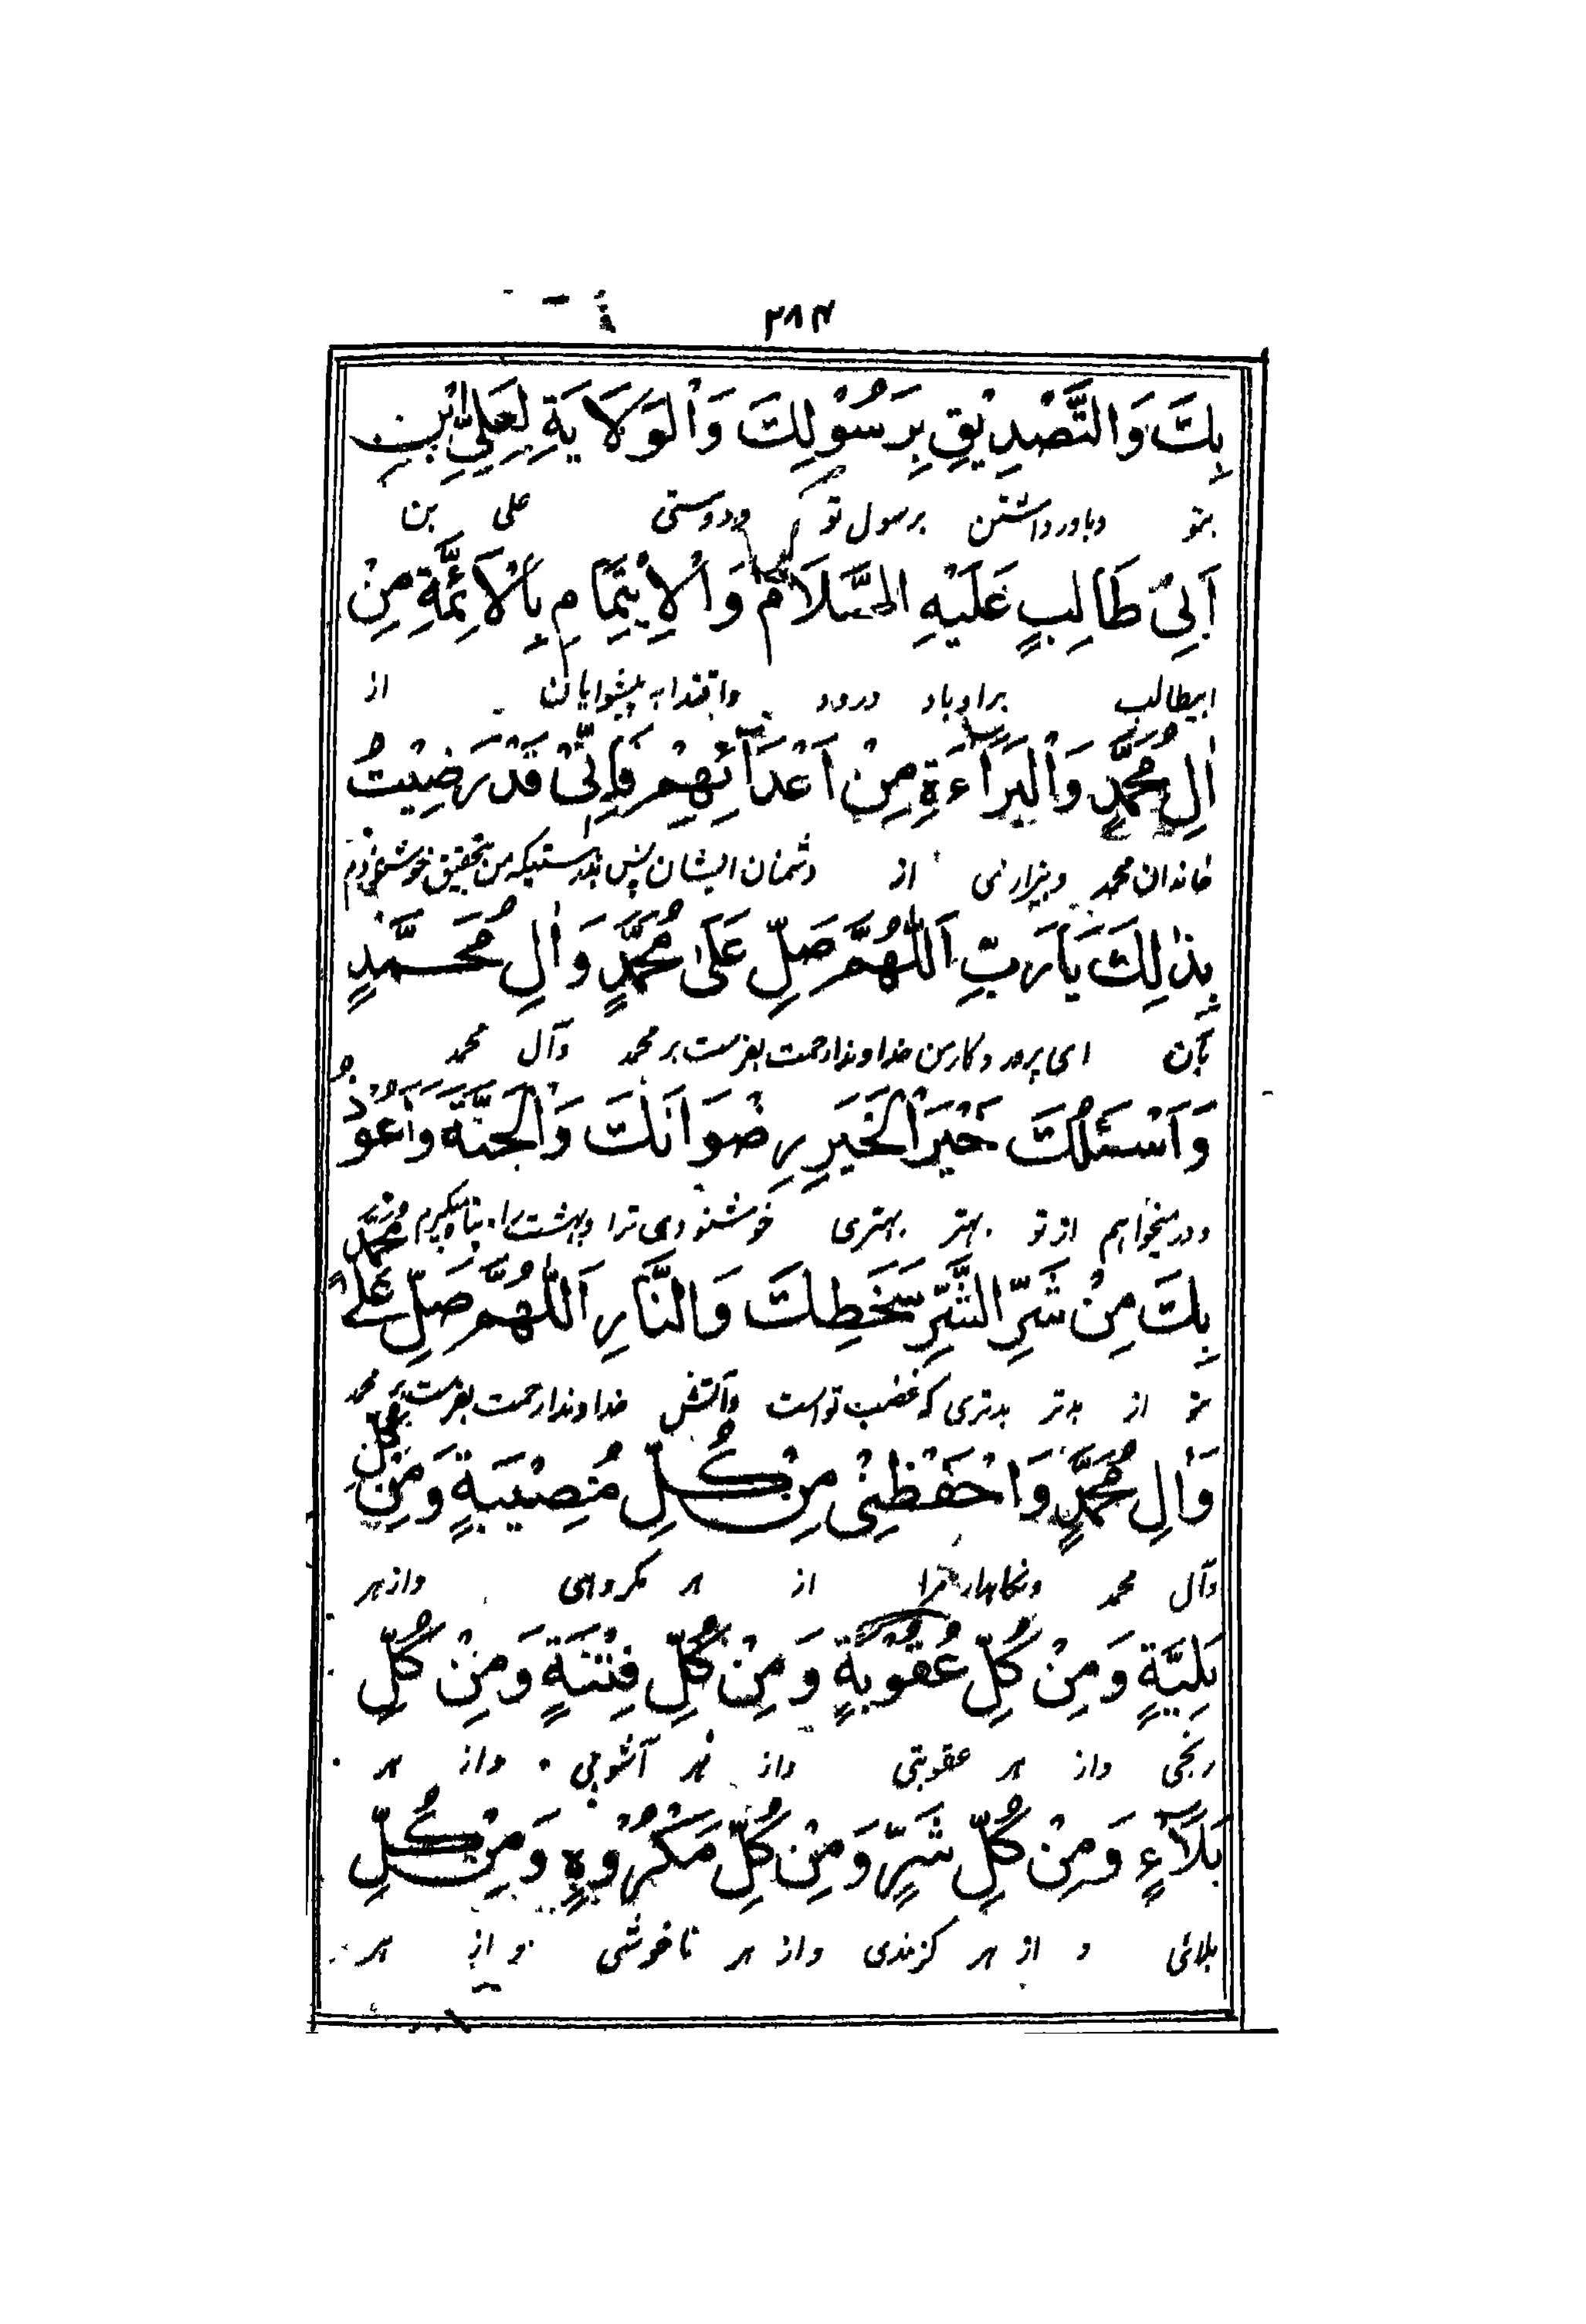 ۳۸۴
بِكَ وَالتَّصْدِيْقِ بِرَسُوْلِكَ وَالْوَلَايَةِ لِعَلِيِّ ابْنِ
بتو وباور داشتن برسول تو ودوستی علی بن
اَبِيْ طَالِبٍ عَلَيْهِ السَّلَامُ وَالْاِيْتِمَامِ بِالْاَئِمَّةِ مِنْ
ابیطالب براو باد درود واقتدا به پیشوایان از
اٰلِ مُحَمَّدٍ وَالْبَرَآءَةِ مِنْ اَعْدَآئِهِمْ فَاِنِّيْ قَدْ رَضِيْتُ
خاندان محمد وبیزاری از دشمنان ایشان پس بدرستیکه من بتحقیق خوشنودم
بِذٰلِكَ يَا رَبِّ اَللّٰهُمَّ صَلِّ عَلٰى مُحَمَّدٍ وَاٰلِ مُحَمَّدٍ
بآن ای پروردگار من خداوندا رحمت بفرست بر محمد وآل محمد
وَاَسْئَلُكَ خَيْرَ الْخَيْرِ رِضْوَانَكَ وَالْجَنَّةَ وَاَعُوْذُ
ودر میخواهم از تو بهتر بهتری خوشنودی ترا وبهشت را
بِكَ مِنْ شَرِّ الشَّرِّ سَخَطِكَ وَالنَّارِ اَللّٰهُمَّ صَلِّ عَلٰى مُحَمَّدٍ
بتو از بدتر بدتری که غضب تو است وآتش خداوندا رحمت بفرست بر محمد
وَاٰلِ مُحَمَّدٍ وَاحْفَظْنِيْ مِنْ كُلِّ مُصِيْبَةٍ وَمِنْ كُلِّ
وآل محمد ونگاهدار مرا از هر مکروهی واز هر
بَلِيَّةٍ وَمِنْ كُلِّ عُقُوْبَةٍ وَمِنْ كُلِّ فِتْنَةٍ وَمِنْ كُلِّ
رنجی واز هر عقوبتی واز هر آشوبی واز هر
بَلَآءٍ وَمِنْ كُلِّ شَرٍّ وَمِنْ كُلِّ مَكْرُوْهٍ وَمِنْ كُلِّ
بلائی و از هر گزندی واز هر ناخوشی و از هر